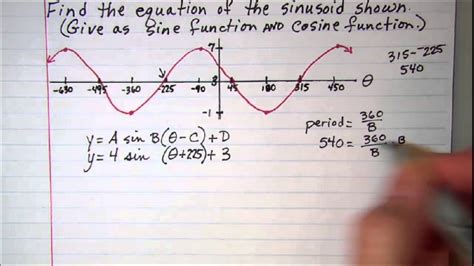 Find the equation of the sinusoid shown.
(Give as sine function AND cosine function.)
7
315--225
540
-630 -495 -360 -225 -90 45 180 315 450 θ
-1
period = 360/B
y = A sin B(θ-C) + D
540 = 360/B · B
y = 4 sin (θ+225) + 3